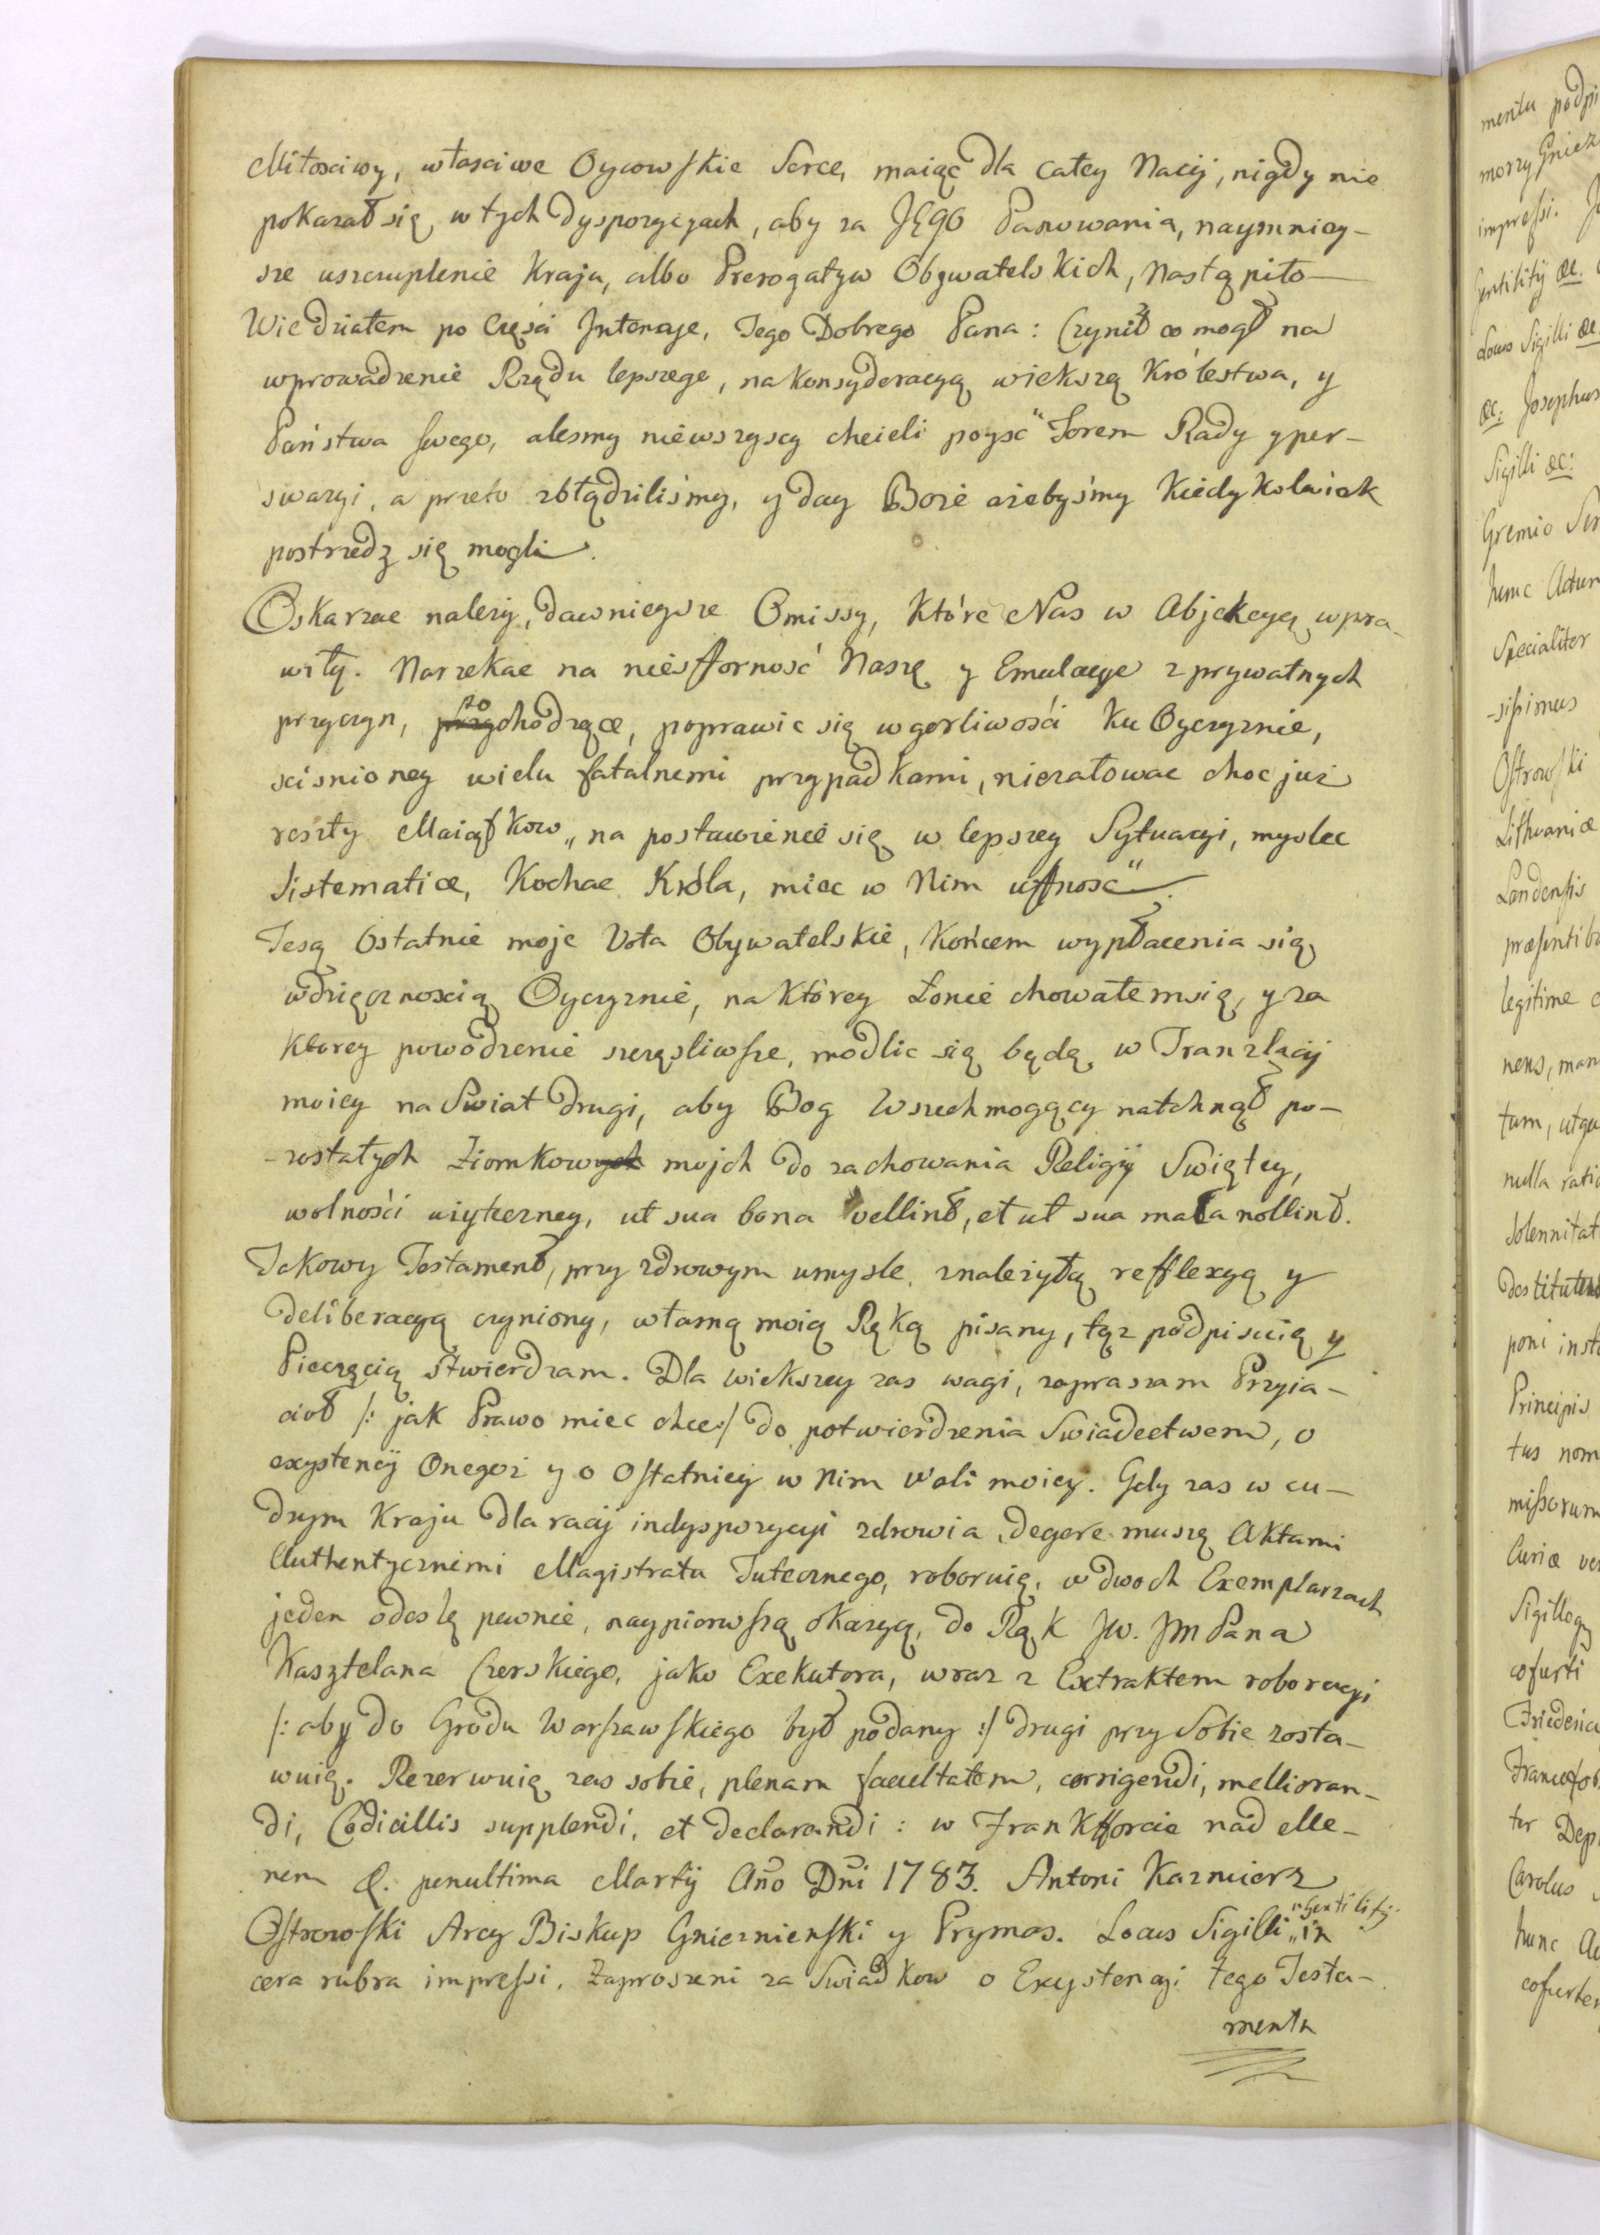 Miłosciwy, własciwe Oycowskie Serce, maiąc dla całey Nacij, nigdy nie
pokazał się, w tych dyspozycyach, aby za JĘgo Panowania, naymniey-
sze uszczuplenie Kraju, albo Prerogatyw Obywatelskich, nastąpiło
Wiedziałem po Części Jntencye, Tego Dobrego Pana: Czynił co mogł na
wprowadzenie Rządu lepszego, na konsyderacyą większą Królestwa, y
Państwa swego, alesmy niewszyscy chcieli poysć Torem Rady y per-
swazyi, a przeto zbłądziliśmy, y day Boże ażebyśmy Kiedykolwiek
postrzedz się mogli.
Oskarzac należy, dawnieysze Omissy, Które Nas w Abjekcyą wpra-
wiły. Narzekac na niesfforność Naszę y Emulacye z prywatnych
przyczyn, pochodzące, poprawic się w gorliwośći ku Oyczyznie,
sciśnioney wielu fatalnemi przypadkami, nieżałowac choc już
reszty Maiątkow „na postawienie się w lepszey Sytuacyi, myslec
Sistematice, Kochac Króla, miec w Nim uffnosc“.
Te są Ostatnie moje Vota Obywatelskie, Końcem wypłacenia się
wdzięcznoscią Oyczyznie, na Którey Łonie chowałem się, y za
Ktorey powodzenie szczęsliwsze, modlic się będę, w Tranzlacij
moiey na Swiat drugi, aby Bog Wszechmogący natchnął po-
-zostałych Ziomkow mojch do zachowania Religij Swiętey,
wolnośći użyteczney, ut sua bona vellint, et ut sua mala nollint.
Jakowy Testament, przy zdrowym umysle, z należytą refflexyą y
deliberacyą czyniony, własną moią Ręką pisany, tąz podpisuię y
Pieczęcią stwierdzam. Dla większey zas wagi, zapraszam Przyia-
cioł /: jak Prawo miec chce :/ do potwierdzenia Swiadectwem, o
exystencij Onegoż y o Ostatniey w Nim Woli moiey. Gdy zas w cu-
dzym Kraju dla racij indyspozycyi zdrowia degere muszę Aktami
Authentycznemi Magistratu Tutecznego, roboruię, w dwoch Exemplarzach
jeden odeslę pewnie, naypierwszą okazyą, do Rąk Jw. Jm Pana
Kasztelana Czerskiego, jako Exekutora, wraz z Extraktem roboracyi
/: aby do Grodu Warszawskiego był podany :/ drugi przy Sobie zosta-
wuię. Rezerwuię zas sobie, plenam facultatem, corrigendi, melioran-
di, Codicillis supplendi, et declarandi: w Frankfforcie nad Me-
nem d. penultima Martij Año Dñi 1783. Antoni Kazmierz
Ostrowski Arcy Biskup Gnieznienski y Prymas. Locus Sigilli „Gentilitij„ in
cera rubra impressi. Zaproszeni za Swiadkow o Exystencyi tego Testa-
mentu
mentu
impressi.
Gentilitij &c.
Locus Sigilli &c.
&c: Josephus
Sigilli &c:
Gremio
hunc Actum
Specialiter
-sissimus
Ostrowski
Lithvaniæ
Landensis
legitime
nulla
poni
Principis
tus nom
missorum
Curiæ
Carolus
hunc